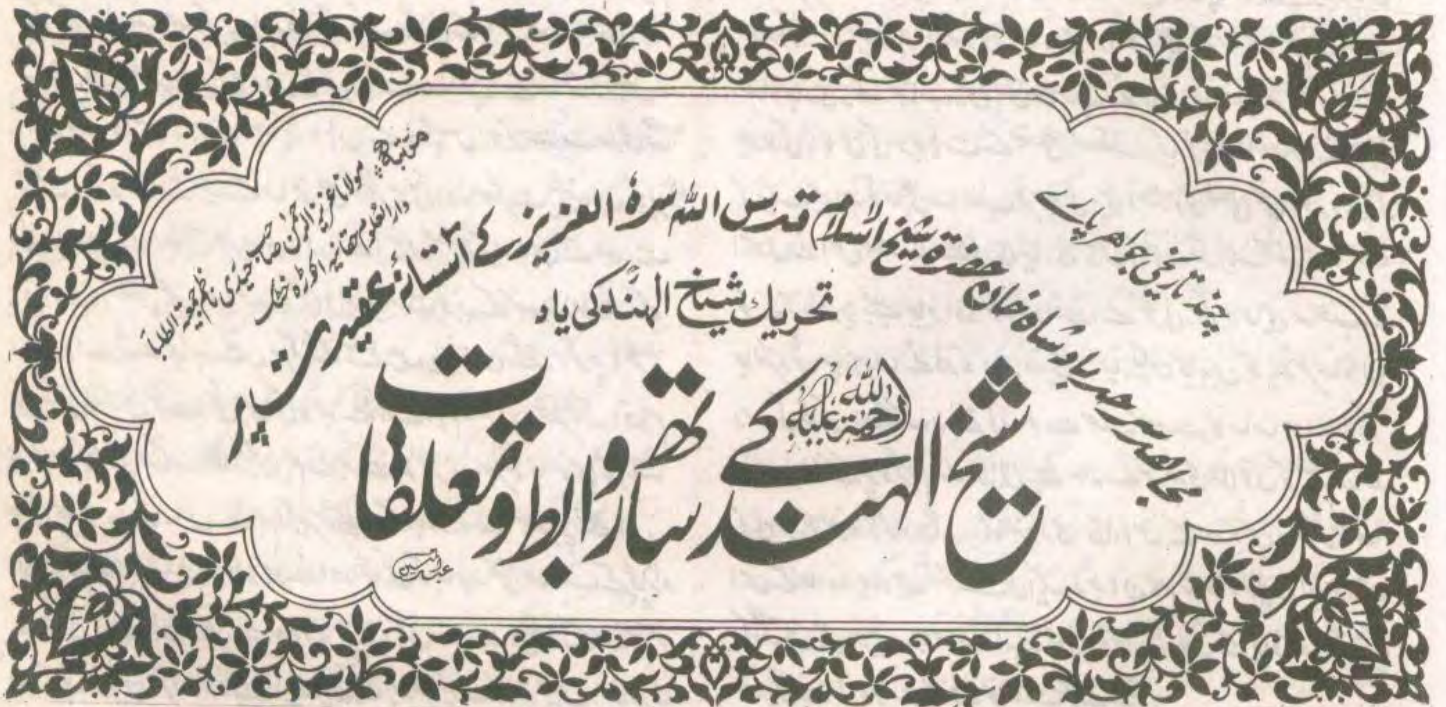 چند تاریخی جواہر پارے
مجاہد سرحد بادشاہ خان حضرۃ شیخ الاسلام قدس اللہ سرہ العزیز کے آستانۂ عقیدت پر
تحریک شیخ الہند کی یاد
شیخ الہند رحمۃ اللہ علیہ کے ساتھ روابط و تعلقات
مولانا عزیز الرحمٰن صاحب حیدری ناظم جمعیۃ الطلبا
دارالعلوم حقانیہ اکوڑہ خٹک